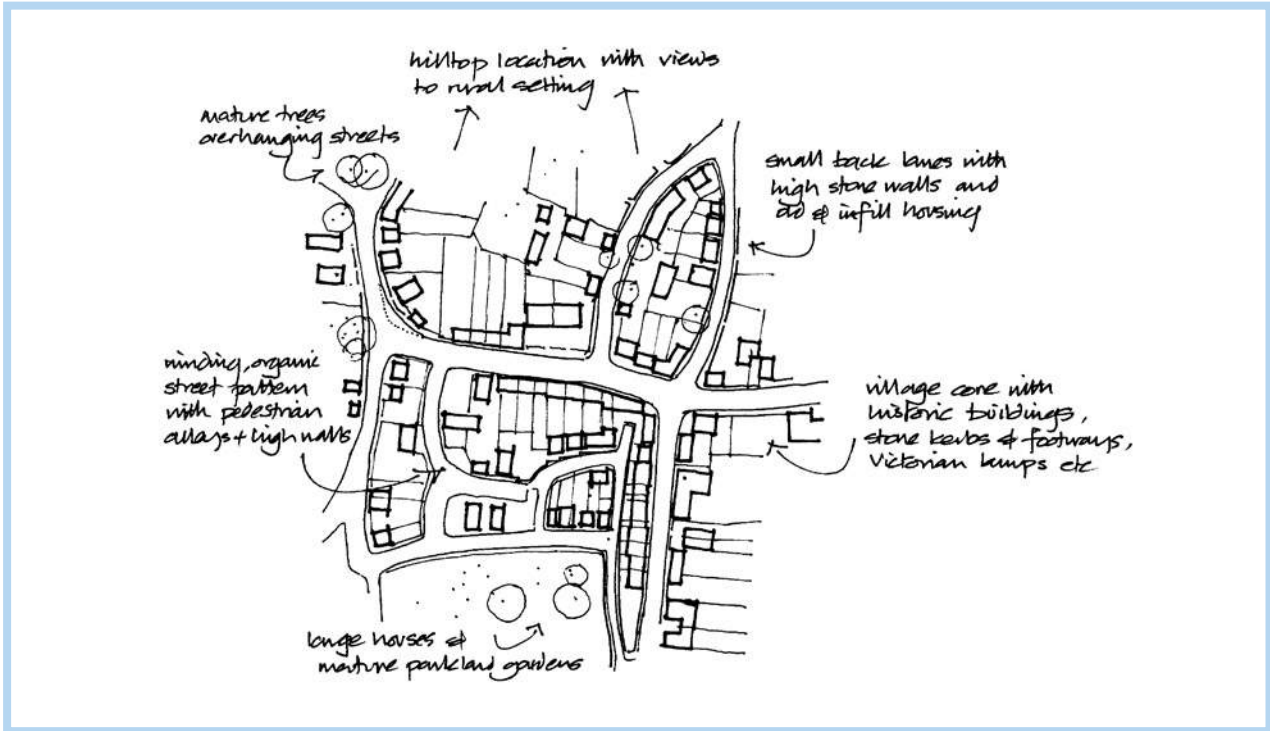 hilltop location with views
to rural setting
mature trees
overhanging streets
small back lanes with
high stone walls and
old & infill housing
winding, organic
street pattern
with pedestrian
alleys + high walls
village core with
historic buildings,
stone kerbs & footways,
Victorian lamps etc
large houses &
mature parkland gardens